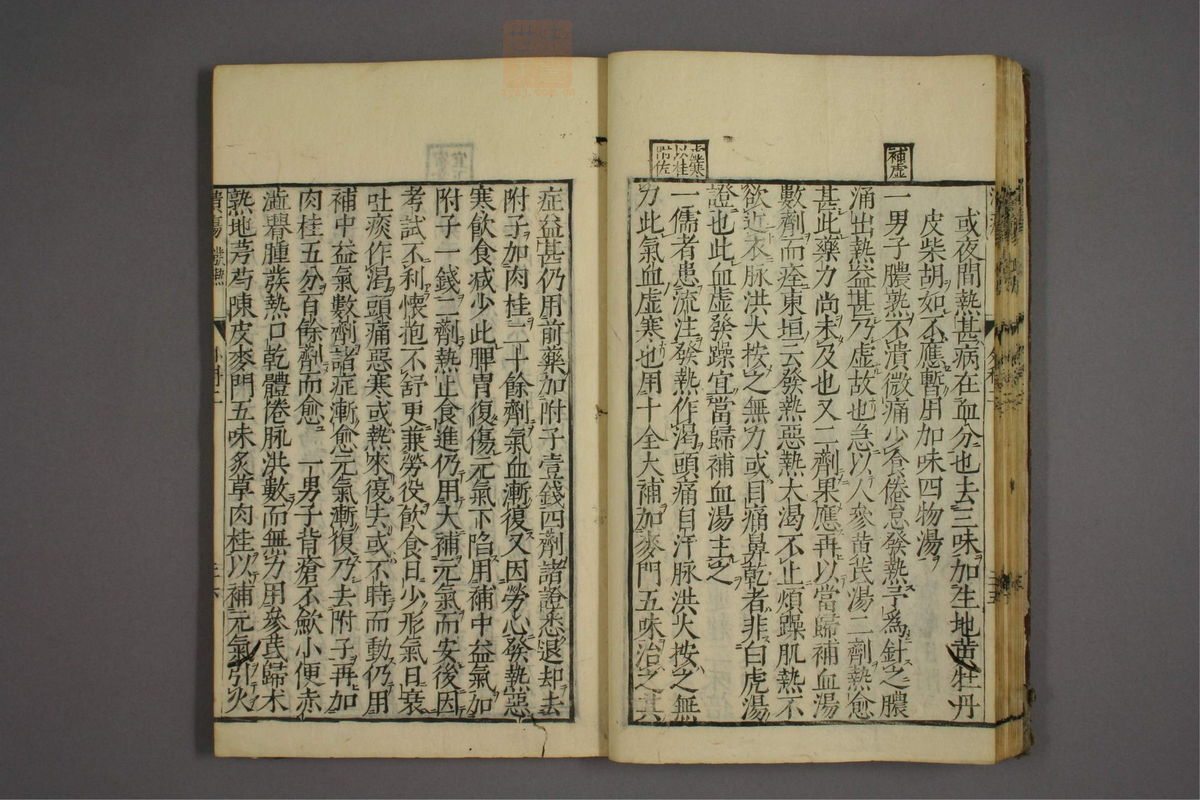 補虛
或夜間熱甚病在血分也去三味加生地黄牡丹
皮柴胡如不應暫用加味四物湯
一男子膿熟不潰微痛少食倦怠發熱予爲針之膿
涌出熱益甚乃虚故也急以人參黄芪湯二劑熱愈
甚此藥力尚未及也又二劑果應再以當歸補血湯
數劑而痊東垣云發熱惡熱大渴不止煩躁肌熱不
欲近衣脉洪大按之無力或目痛鼻乾者非白虎湯
證也此血虚發躁宜當歸補血湯主之
虛寒
以桂
附佐
一儒者患流注發熱作渴頭痛自汗脉洪大按之無
力此氣血虚寒也用十全大補加麥門五味治之其
症益甚仍用前藥加附子壹錢四劑諸證悉退却去
附子加肉桂二十餘劑氣血漸復又因勞心發熱惡
寒飲食减少此脾胃復傷元氣下陷用補中益氣加
附子一錢二劑熱止食進仍用大補元氣而安後因
考試不利懷抱不舒更兼勞役飲食日少形氣日衰
吐痰作渴頭痛惡寒或熱來復去或不時而動仍用
補中益氣數劑諸症漸愈元氣漸復乃去附子再加
肉桂五分百餘劑而愈 一男子背瘡不歛小便赤
澁臀腫發熱口乾體倦脉洪數而無力用參芪歸朮
熟地芎芍陳皮麥門五味炙草肉桂以補元氣引火
潰瘍